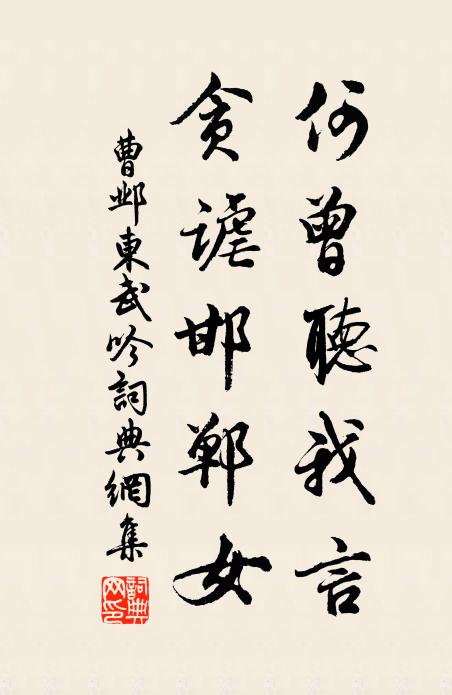 何曾聽我言
貪謔邯鄲女
曹鄴東武吟詞典網集
詞典網印